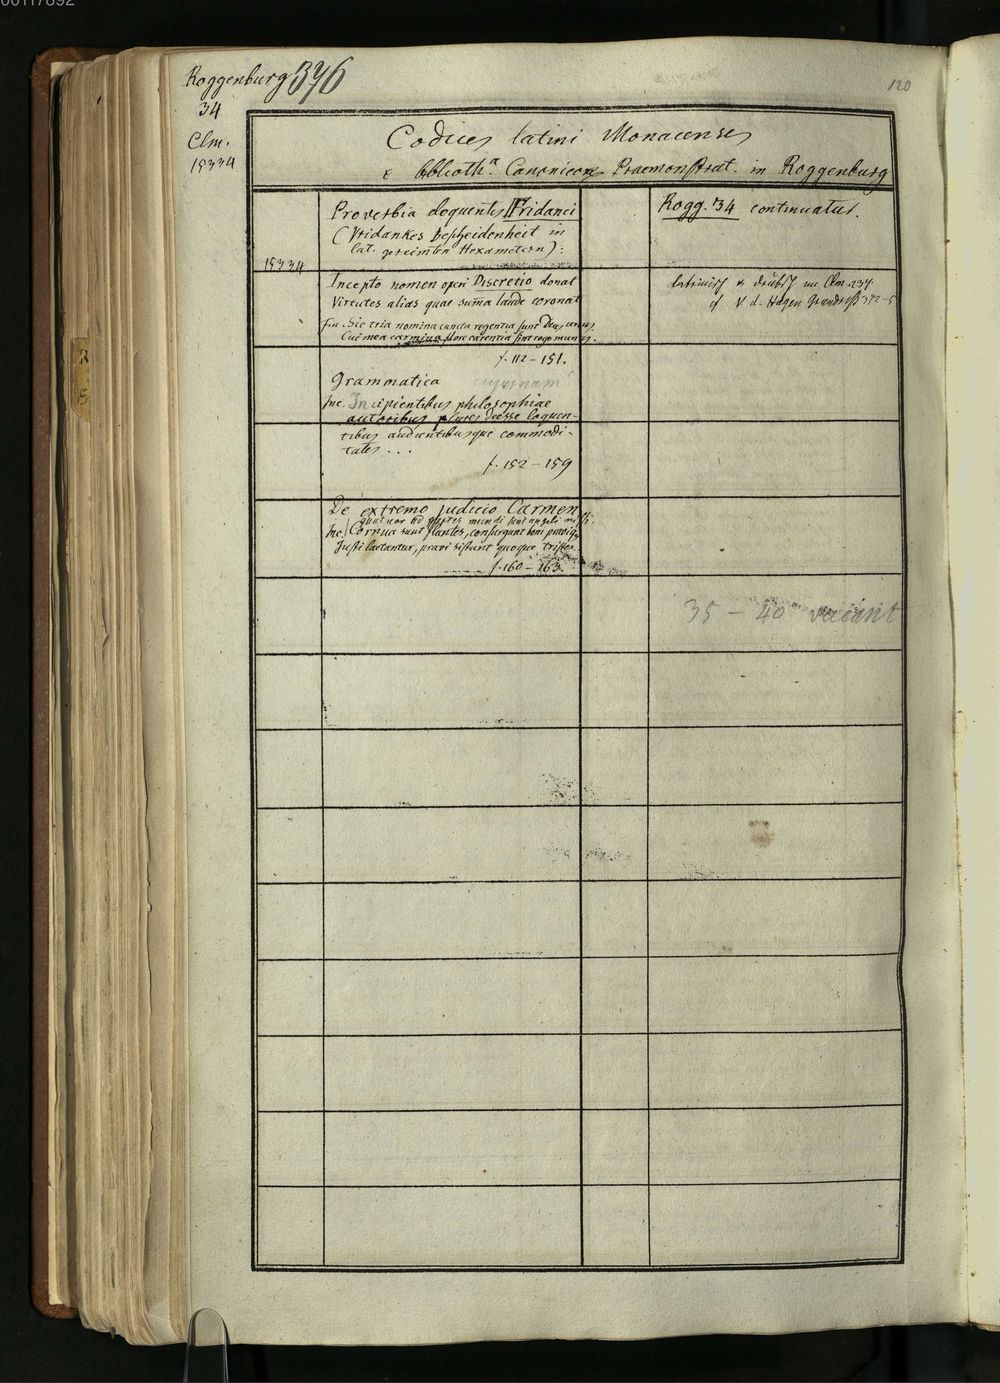 00117892
Roggenburg 376
34
Clm.
15334
120
Codices latini Monacenses
e biblioth.a Canonicor. Praemonstrat. in Roggenburg
Proverbia eloquentis Fridanci
(Vridankes Bescheidenheit in
lat. gereimten Hexametern):
15334
Incepto nomen operi Discretio donat
Virtutes alias quae suma laude coronat
fin. Sic tria nomina cuncta regentia sunt Deus unus.
Cui mea carmina flore carentia sint rogo munus.
f. 112 - 151.
Grammatica
Inc. Incipientibus philosophiae
autoribus plures deesse loquen-
tibus audientibusque commodi-
tates ...
f. 152 - 159
De extremo judicio Carmen
quatuor ad partes mundi sunt angeli missi.
Inc. Cornua sunt flantes, consurgunt boni pravique
Justi laetantur, pravi sistunt quoque tristes.
f. 160 - 163.
Rogg. 34 continuatur.
lateinisch u. deutsch im Clm. 234
cf V d. Hagen Grundriß 372-5
35 - 40 vacant